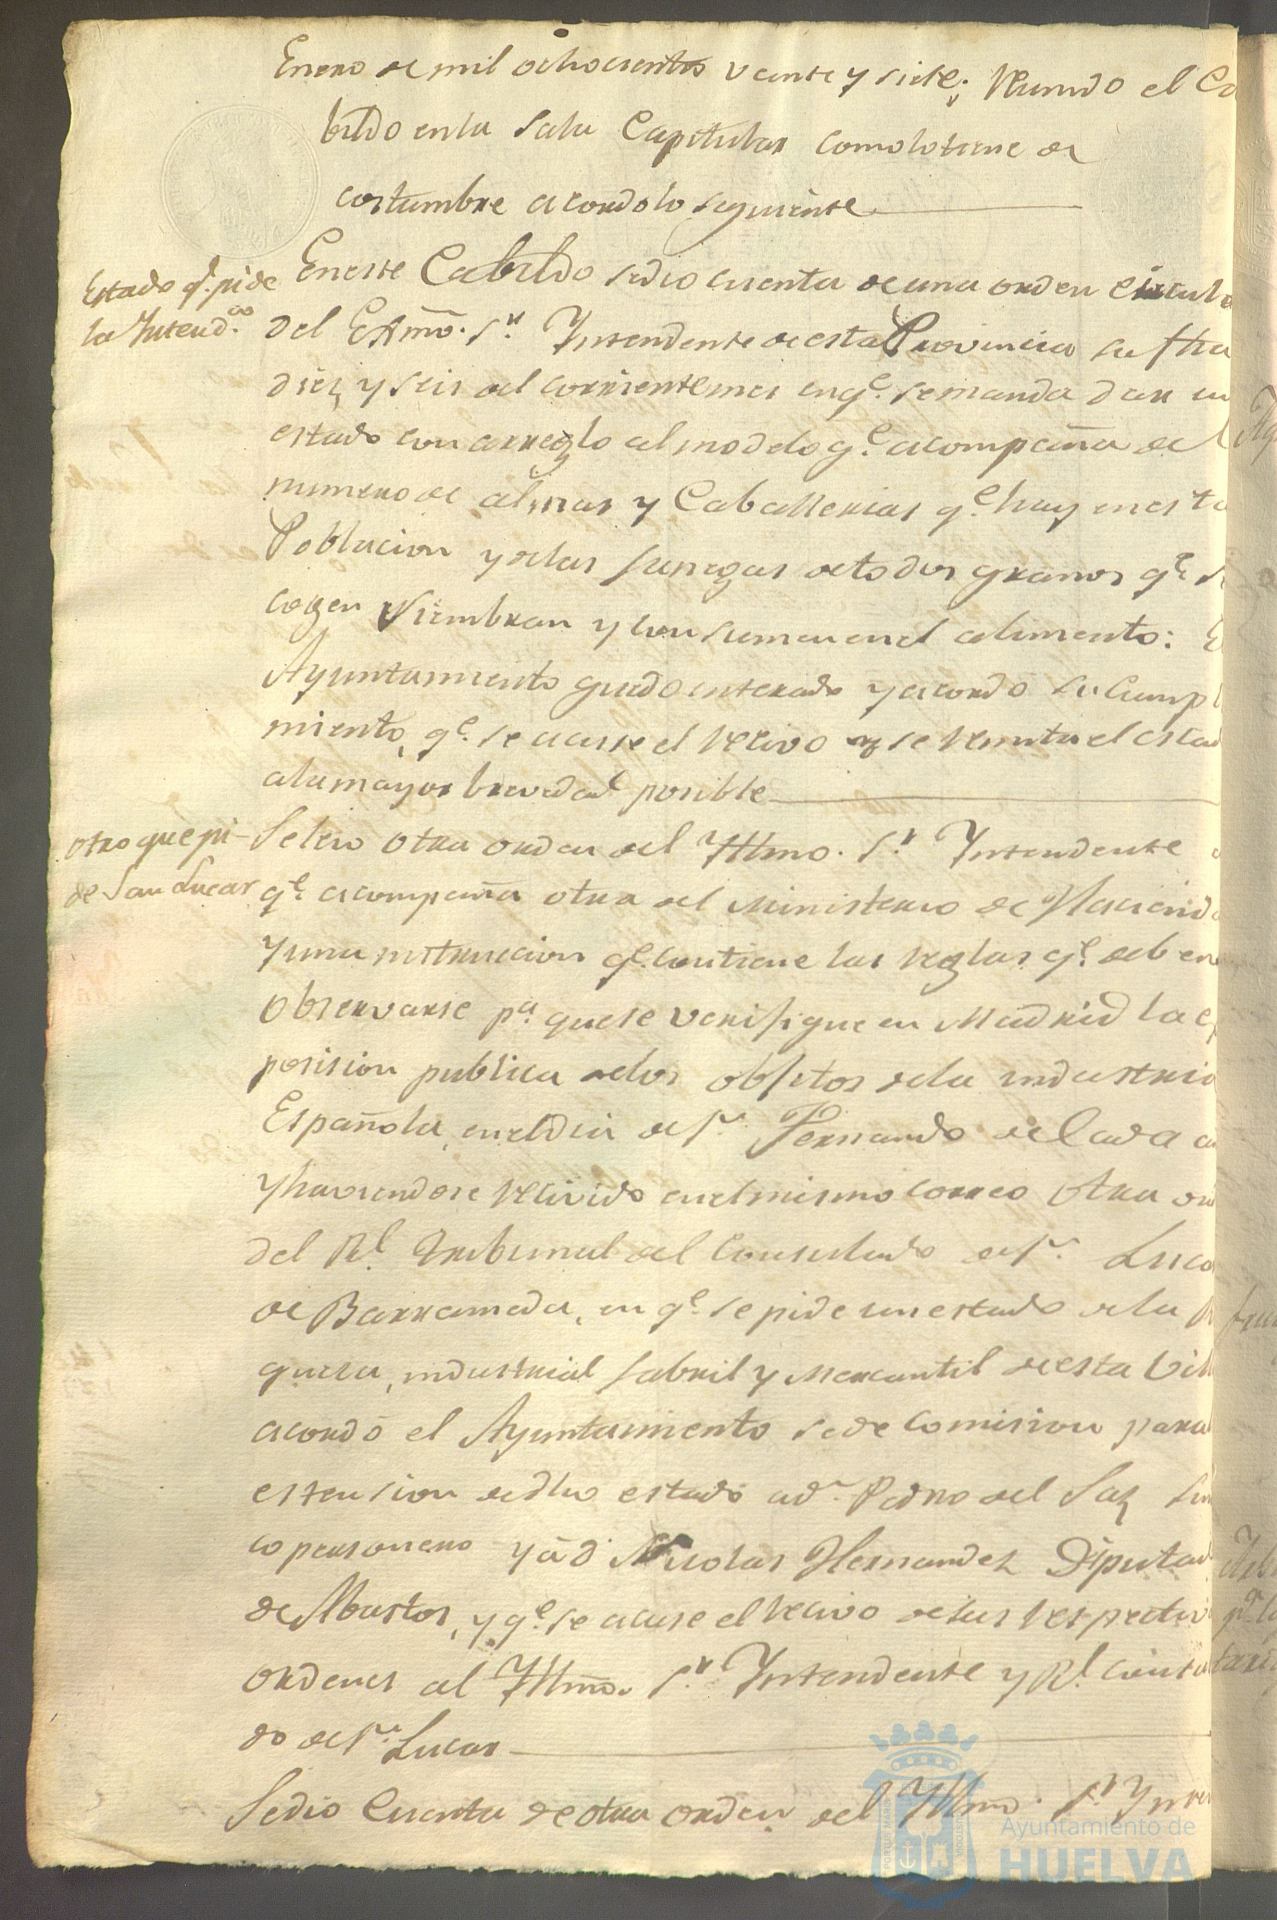 Enero de mil ochocientos veinte y siete; Reunido el Ca
bildo en la Sala Capitular como lo tiene de
costumbre acordo lo siguiente
Estado q.e pide
la Intend.ca
En este Cabildo se dio cuenta de una orden circula
del Exmo. S.r Yntendente de esta Provincia su fha
diez y seis del corriente mes en q.e se manda dar un
estado con arreglo al modelo q.e acompaña del
numero de almas y Caballerias q.e hay en esta
Poblacion y de las fanegas de todos granos q.e se
cogen siembran y consumen en el alimento: El
Ayuntamiento quedo enterado y acordó su cumpl
miento, q.e se acuse el recivo y se remita el estad
a la mayor brevedad posible
Otro que pi-
de San Lucar
Se leio otra orden del Yllmo. S.r Yntendente
q.e acompaña otra del Ministerio de Haciend
y una instruccion q.e contiene las reglas q.e deben
observarse p.a que se verifique en Madrid la es
posision publica de los objetos de la industria
Española, en el dia de S.n Fernando de Cada a
y haviendose recivido en el mismo correo otra or
del R.l Tribunal del Consulado de S.n Luca
de Barrameda, en q.e se pide un estado de la Ri
queza, industrial fabril y Mercantil de esta Vill
acordó el Ayuntamiento se de Comision para
estension de dho estado a d.n Pedro del Saz Sin
co personero y á d.n Nicolas Hernandez Diputad
de Abastos, y q.e se acuse el recivo de sus respectiv
ordenes al Yllmo. S.r Yntendente y R.l Consula
do de S.n Lucar
Se dio Cuenta de otra orden del Yllmo. S.r Ynten
Ayuntamiento de
HUELVA